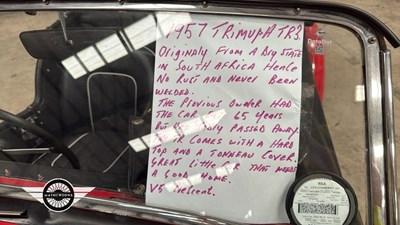 1957 TRIMUPH TR3.
ORIGINALY FROM A DRY STATE
IN SOUTH AFRICA HENCE
NO RUST AND NEVER BEEN
WELDED.
THE PREVIOUS OWNER HAD
THE CAR 65 YEARS
BUT PASSED AWAY.
COMES WITH A HARD
TOP AND A TONNEAU COVER.
GREAT LITTLE CAR THAT NEEDS
A GOOD HOME.
V5 PRESENT.